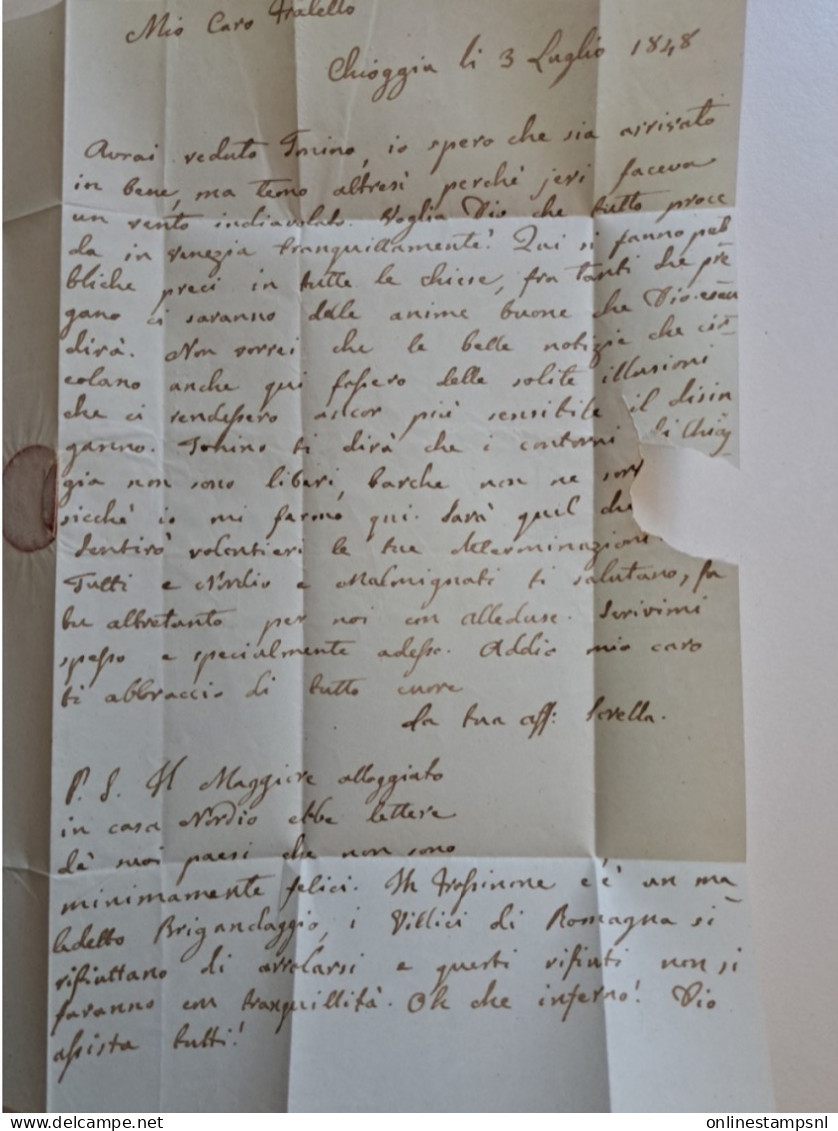 Mio Caro Fratello
Chioggia li 3 Luglio 1848
Avrai veduto Tonino, io spero che sia arrivato
in bene, ma temo altresì perchè jeri faceva
un vento indiavolato. Voglia Dio che tutto proce
da in Venezia tranquillamente! Qui si fanno pub
bliche preci in tutte le chiese, fra tanti che pre
gano ci saranno delle anime buone che Dio esau
dirà. Non vorrei che le belle notizie che cir
colano anche qui fossero delle solite illusioni
che ci rendessero ancor più sensibile il disin
ganno. Tonino ti dirà che i contorni di Chiog
gia non sono liberi, barche non ne sor
sicchè io mi fermo qui. Sarà quel che
Sentirò volentieri le tue determinazioni
Tutti e Nordio e Malmignati ti salutano, fa
tu altretanto per noi con
spesso e specialmente adesso. Addio mio caro
ti abbraccio di tutto cuore
La tua aff: Sorella.
P. S. Il Maggiore alloggiato
in casa Nordio ebbe lettere
da suoi paesi che non sono
minimamente felici. In Frossinone c'è un ma
ledetto Brigandaggio, i Villici di Romagna si
rifiuttano di arrolarsi e questi rifiuti non si
faranno con tranquillità. Oh che inferno! Dio
assista tutti!
onlinestampsnl